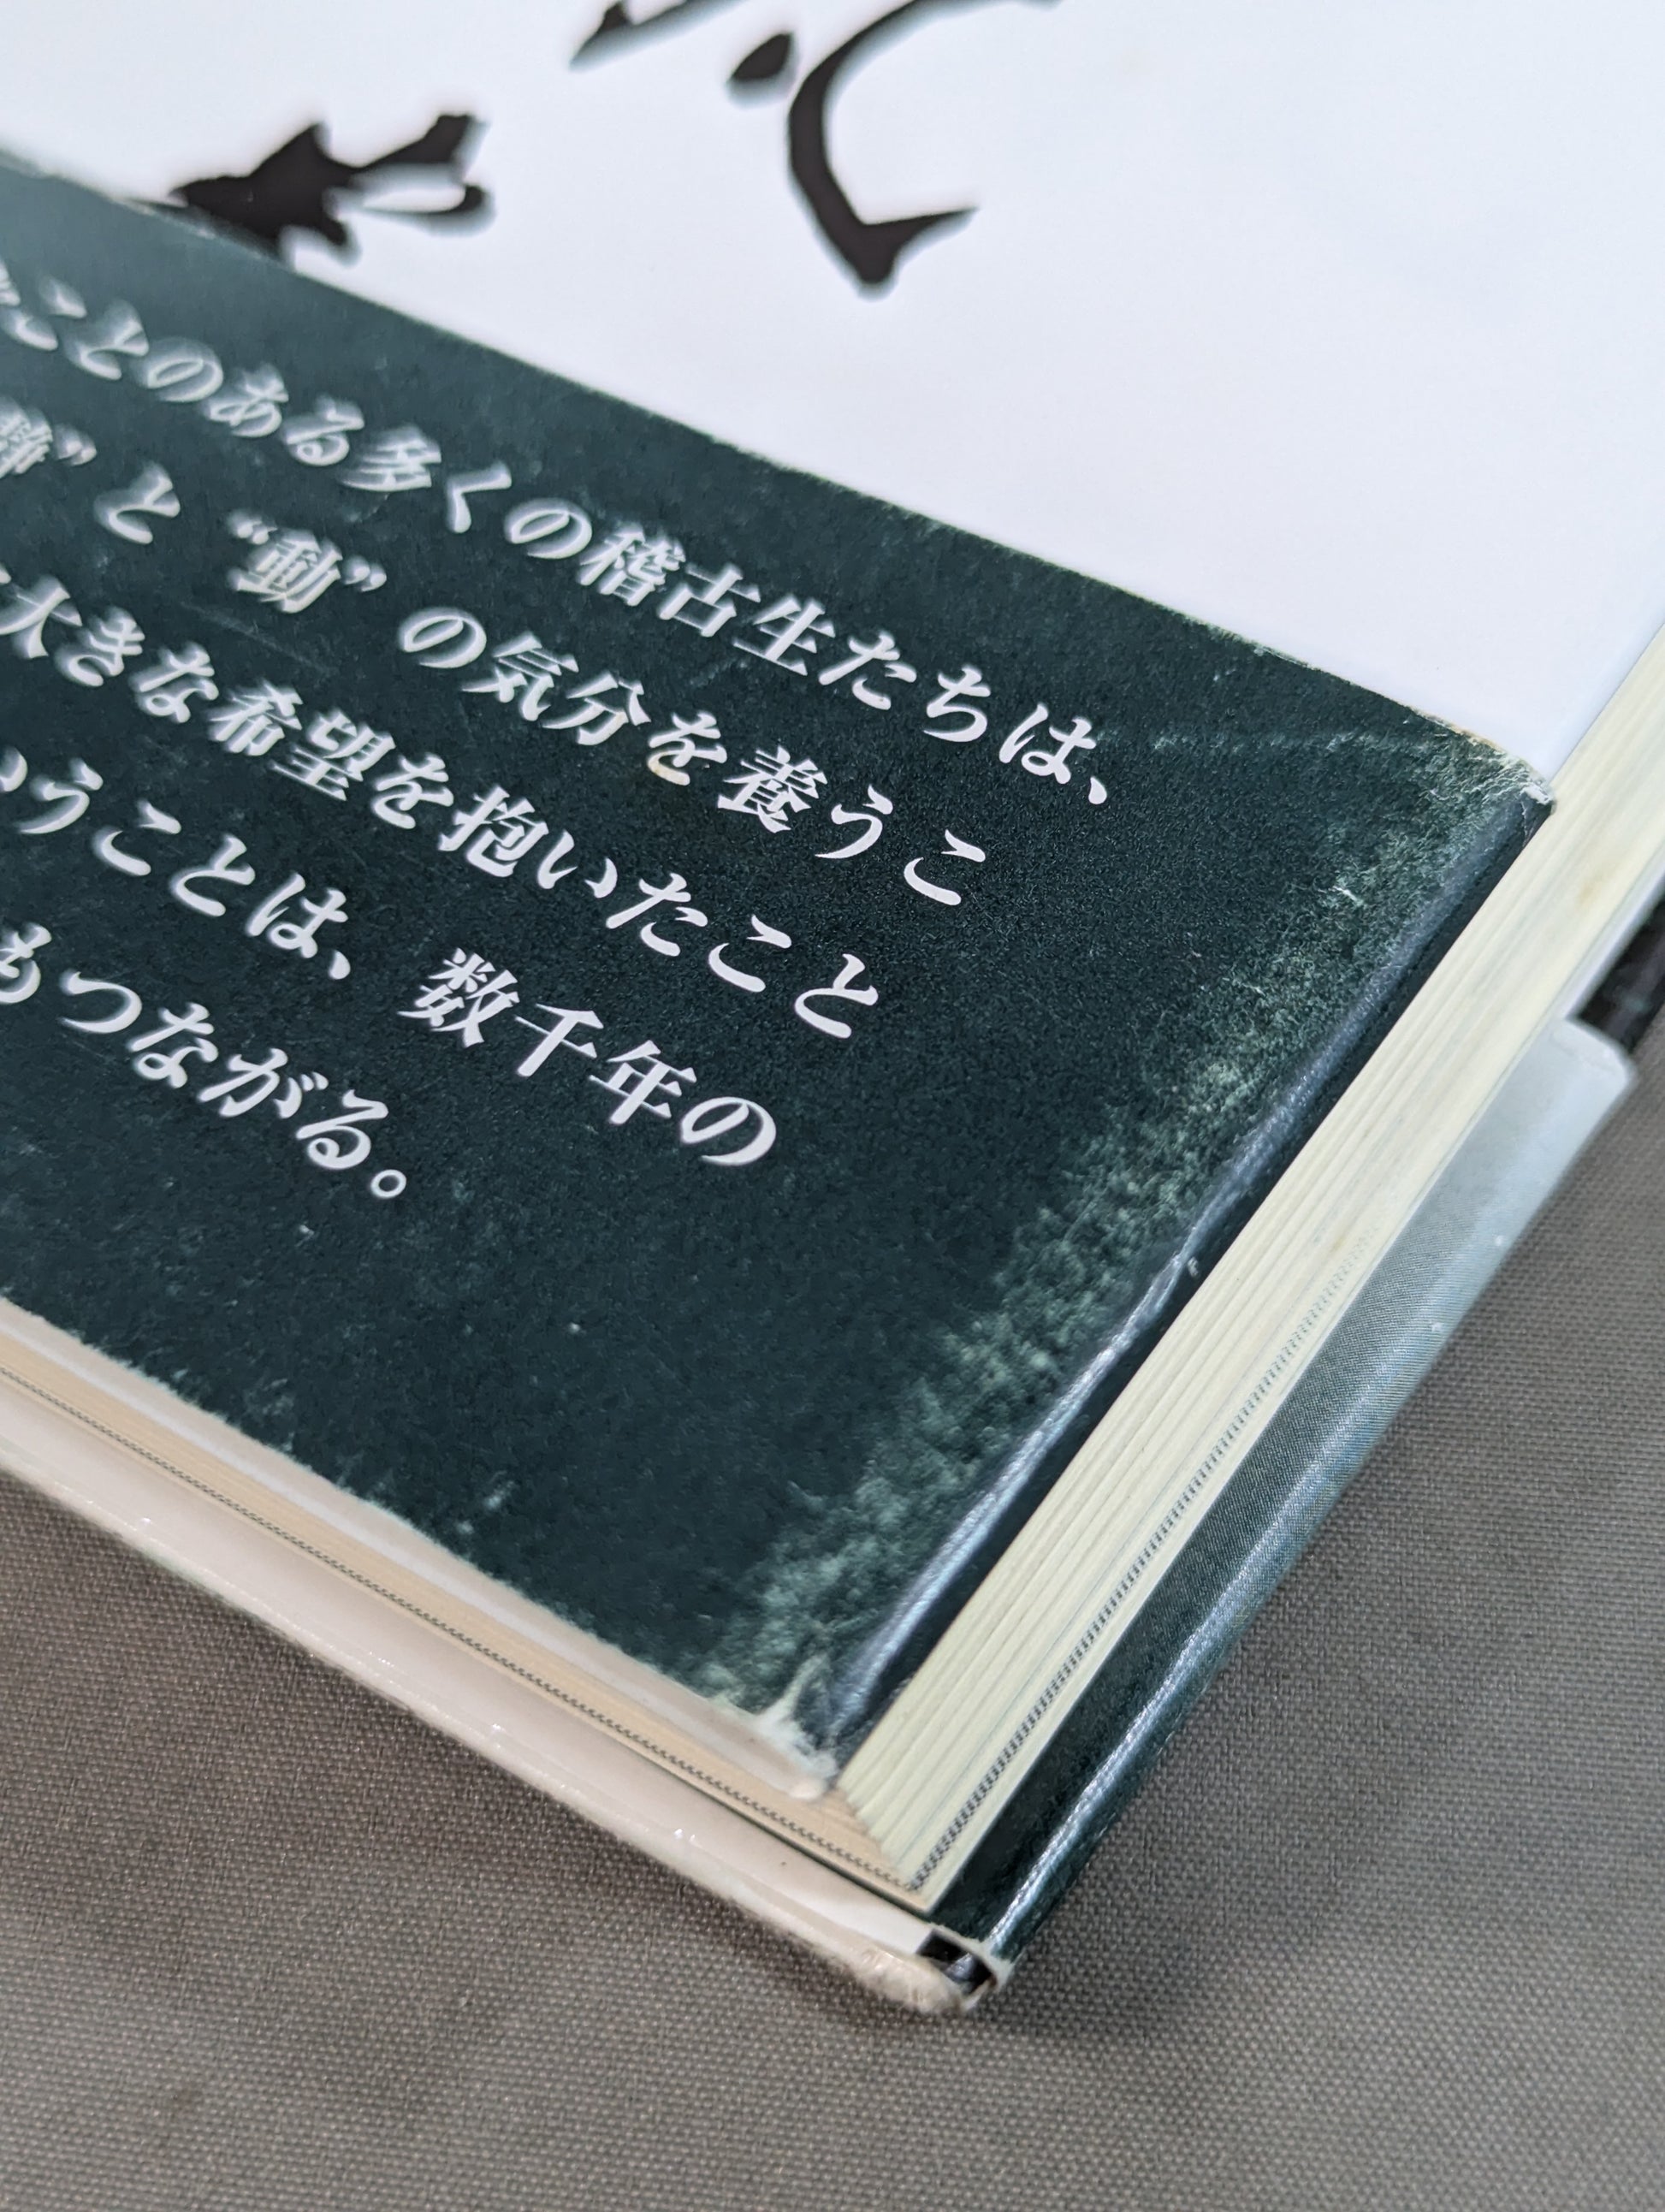 ことのある多くの稽古生たちは、
”と“動”の気分を養うこ
大きな希望を抱いたこと
うことは、数千年の
もつながる。